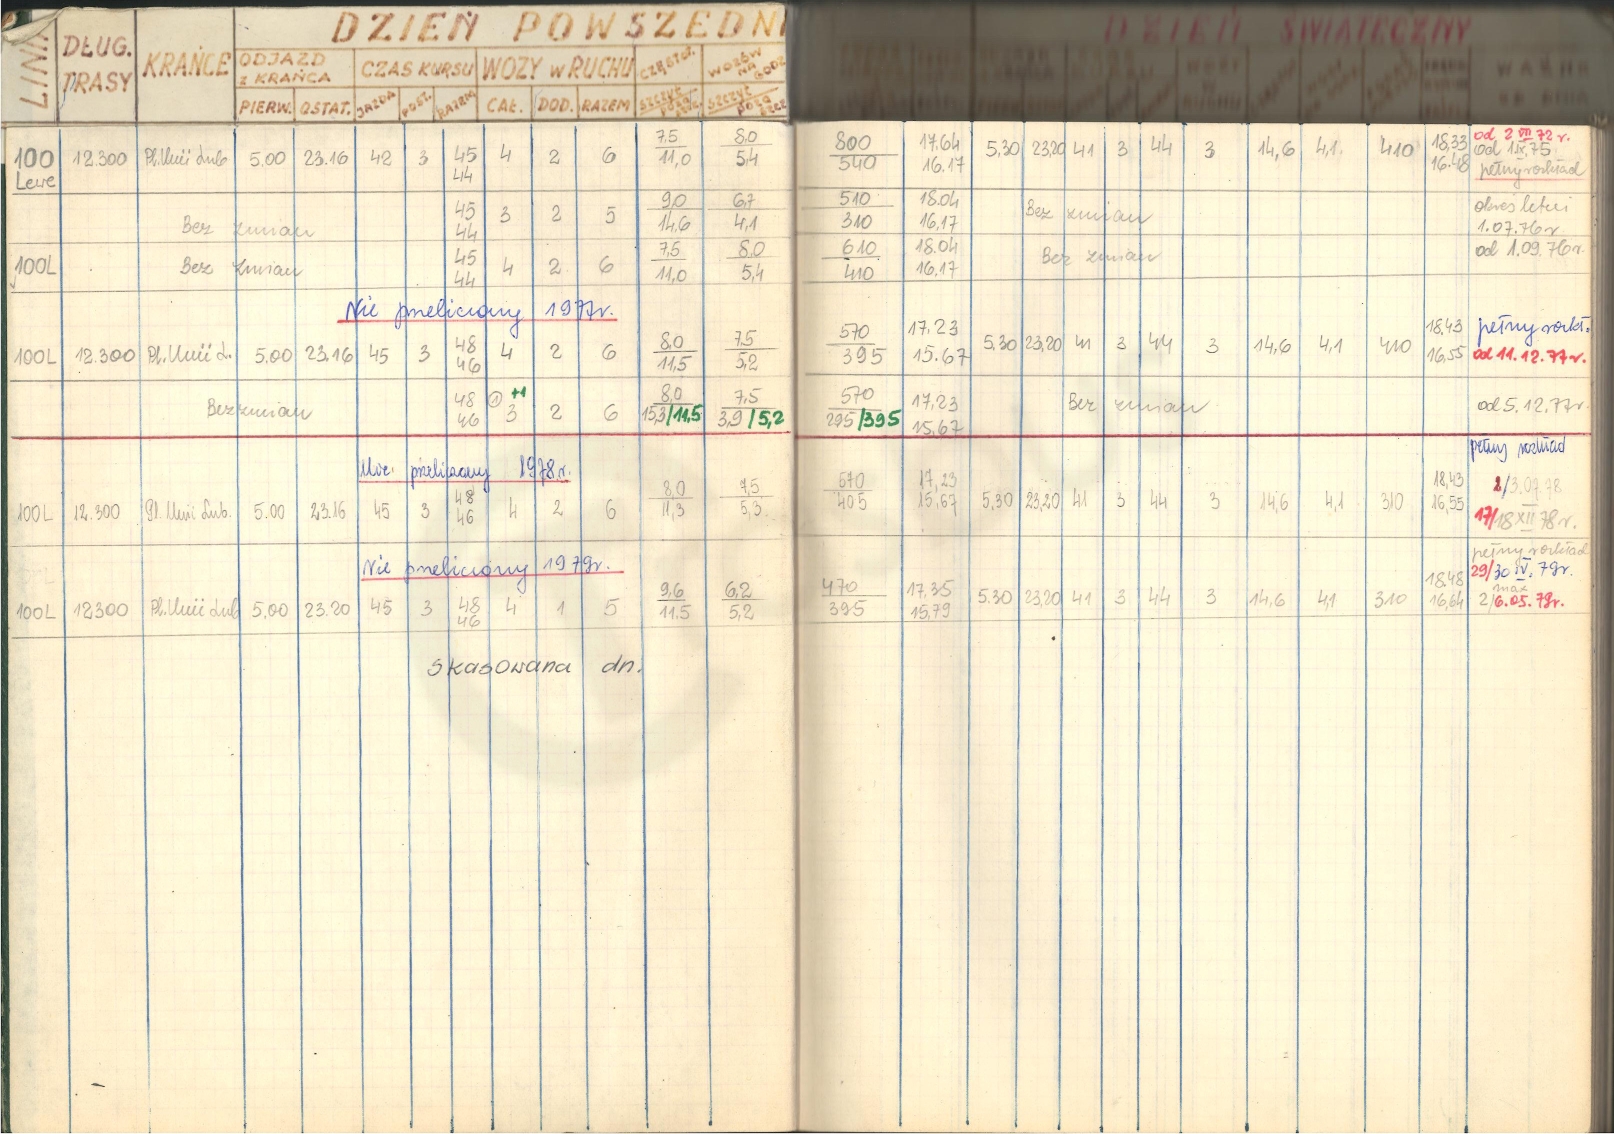 DZIEŃ POWSZEDNI DZIEŃ ŚWIĄTECZNY
LINIA DŁUG. TRASY KRAŃCE ODJAZD Z KRAŃCA CZAS KURSU WOZY W RUCHU CZĘSTOT. WOZÓW NA GODZ
PIERW. OSTAT. JAZDA POST. RAZEM CAŁ. DOD. RAZEM
100 Lewe 12.300 Pl. Unii Lub 5,00 23.16 42 3 45 44 4 2 6 7,5 11,0 8,0 5,4 800 540 17.64 16.17 5,30 23,20 41 3 44 3 14,6 4,1 410 18,33 16.48 od 2 VII 72 r. od 1.IX.75 pełny rozkład
Bez zmian 45 44 3 2 5 9,0 14,6 6,7 4,1 510 310 18.04 16,17 Bez zmian okres letni 1.07.76r
100L Bez zmian 45 44 4 2 6 7,5 11,0 8,0 5,4 610 410 18.04 16,17 Bez zmian od 1.09.76r.
Nie przeliczony 1977r.
100L 12.300 Pl. Unii L. 5,00 23,16 45 3 48 46 4 2 6 8,0 11,5 7,5 5,2 570 395 17,23 15.67 5,30 23,20 41 3 44 3 14,6 4,1 410 18,43 16,55 pełny rozkł. od 11.12.77r.
Bez zmian 48 46 1 +1 3 2 6 8,0 15,3/11,5 7,5 3,9/5,2 570 295/395 17,23 15,67 Bez zmian od 5.12.77r.
Nie przeliczony 1978r. pełny rozkład
100L 12.300 Pl. Unii Lub. 5.00 23.16 45 3 48 46 4 2 6 8,0 11,3 7,5 5,3 570 405 17,23 15,67 5,30 23,20 41 3 44 3 14,6 4,1 310 18,43 16,55 2/3.07.78 17/18 XII 78r.
Nie przeliczony 1979r. pełny rozkład
100L 12300 Pl. Unii Lub 5,00 23.20 45 3 48 46 4 1 5 9,6 11.5 6,2 5,2 470 395 17,35 15,79 5.30 23,20 41 3 44 3 14,6 4,1 310 18.48 16,64 29/30 IV. 79r. 2/6.05.79r.
skasowana dn.